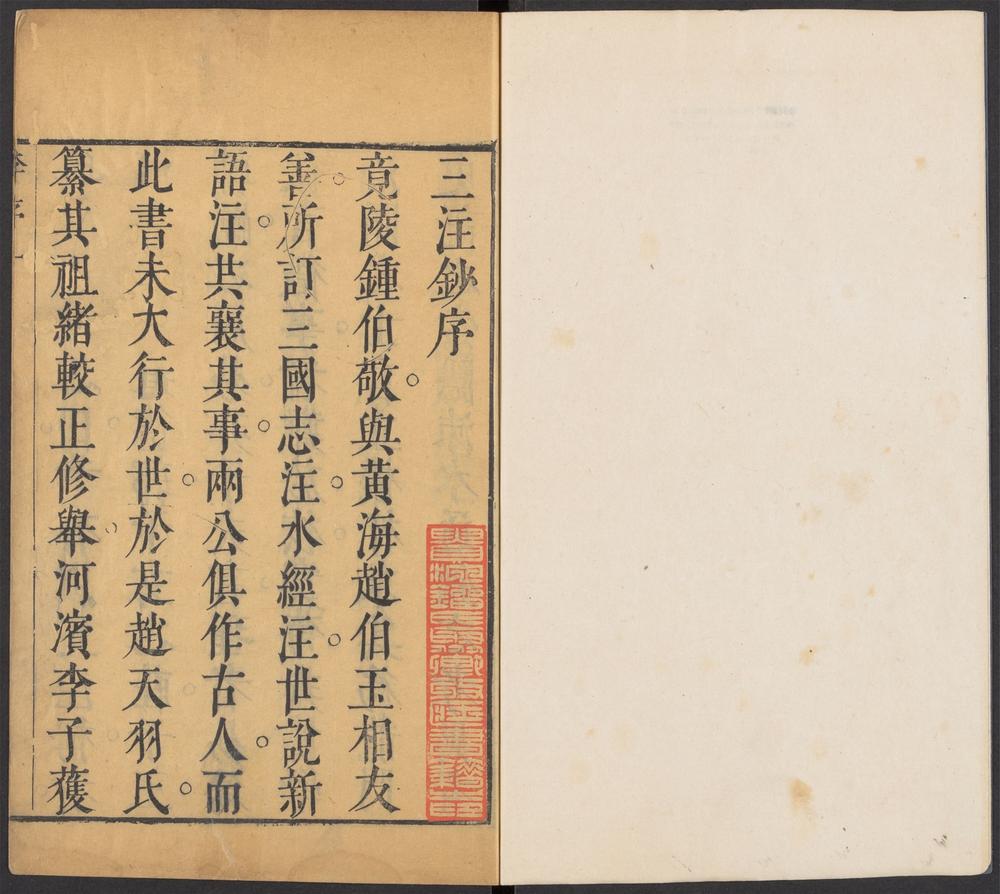 三注鈔序
竟陵鍾伯敬與黄海趙伯玉相友
善所訂三國志注水經注世說新
語注共襄其事兩公俱作古人而
此書未大行於世於是趙天羽氏
纂其祖緒較正修舉河濱李子蒦